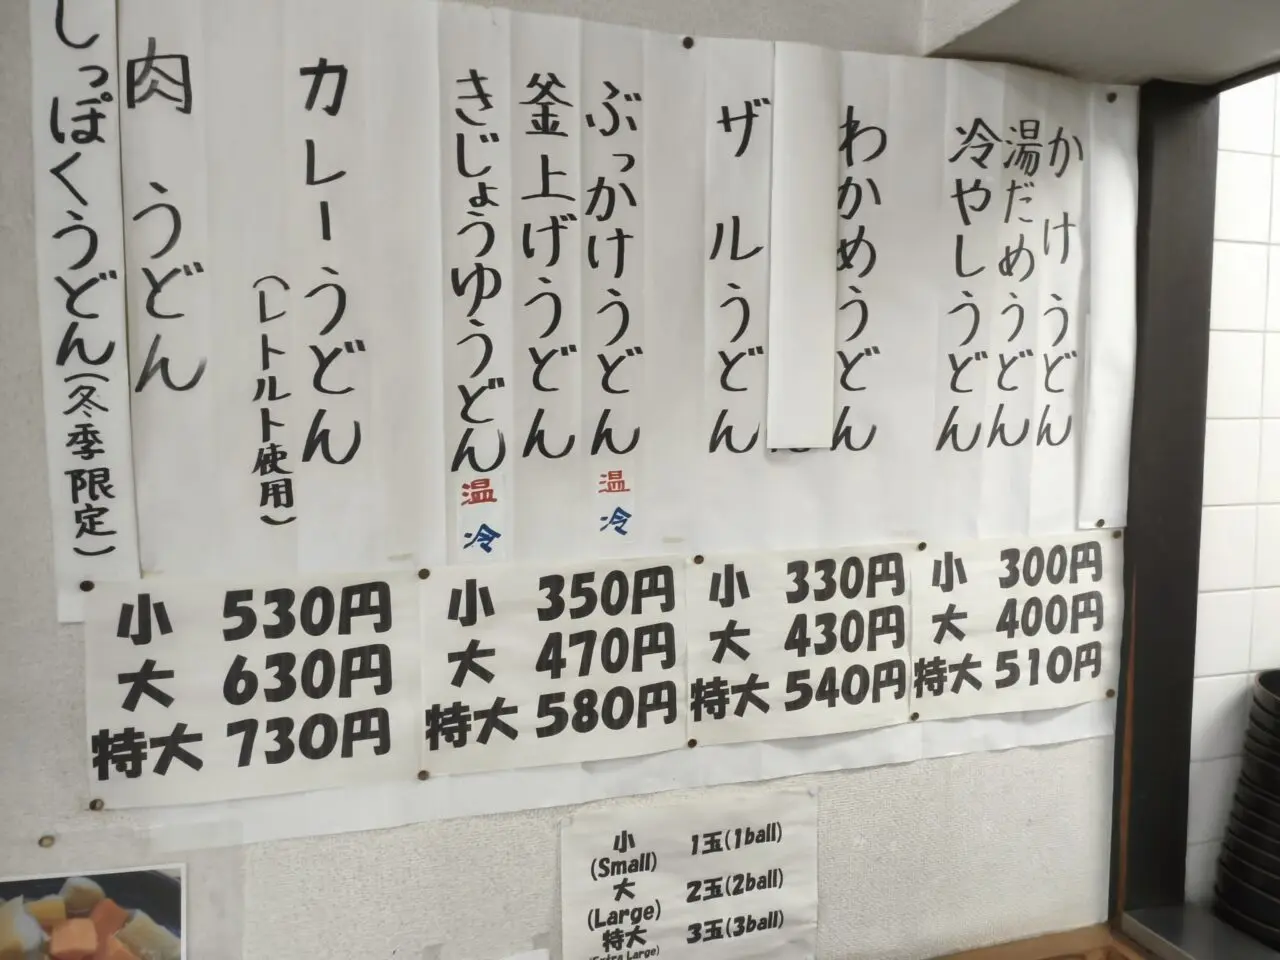 かけうどん
湯だめうどん
冷やしうどん
わかめうどん
ザルうどん
ぶっかけうどん 温 冷
釜上げうどん
きじょうゆうどん 温 冷
カレーうどん
(レトルト使用)
肉うどん
しっぽくうどん(冬季限定)
小 300円
大 400円
特大 510円
小 330円
大 430円
特大 540円
小 350円
大 470円
特大 580円
小 530円
大 630円
特大 730円
小 1玉(1ball)
(Small)
大 2玉(2ball)
(Large)
特大 3玉(3ball)
(Extra Large)